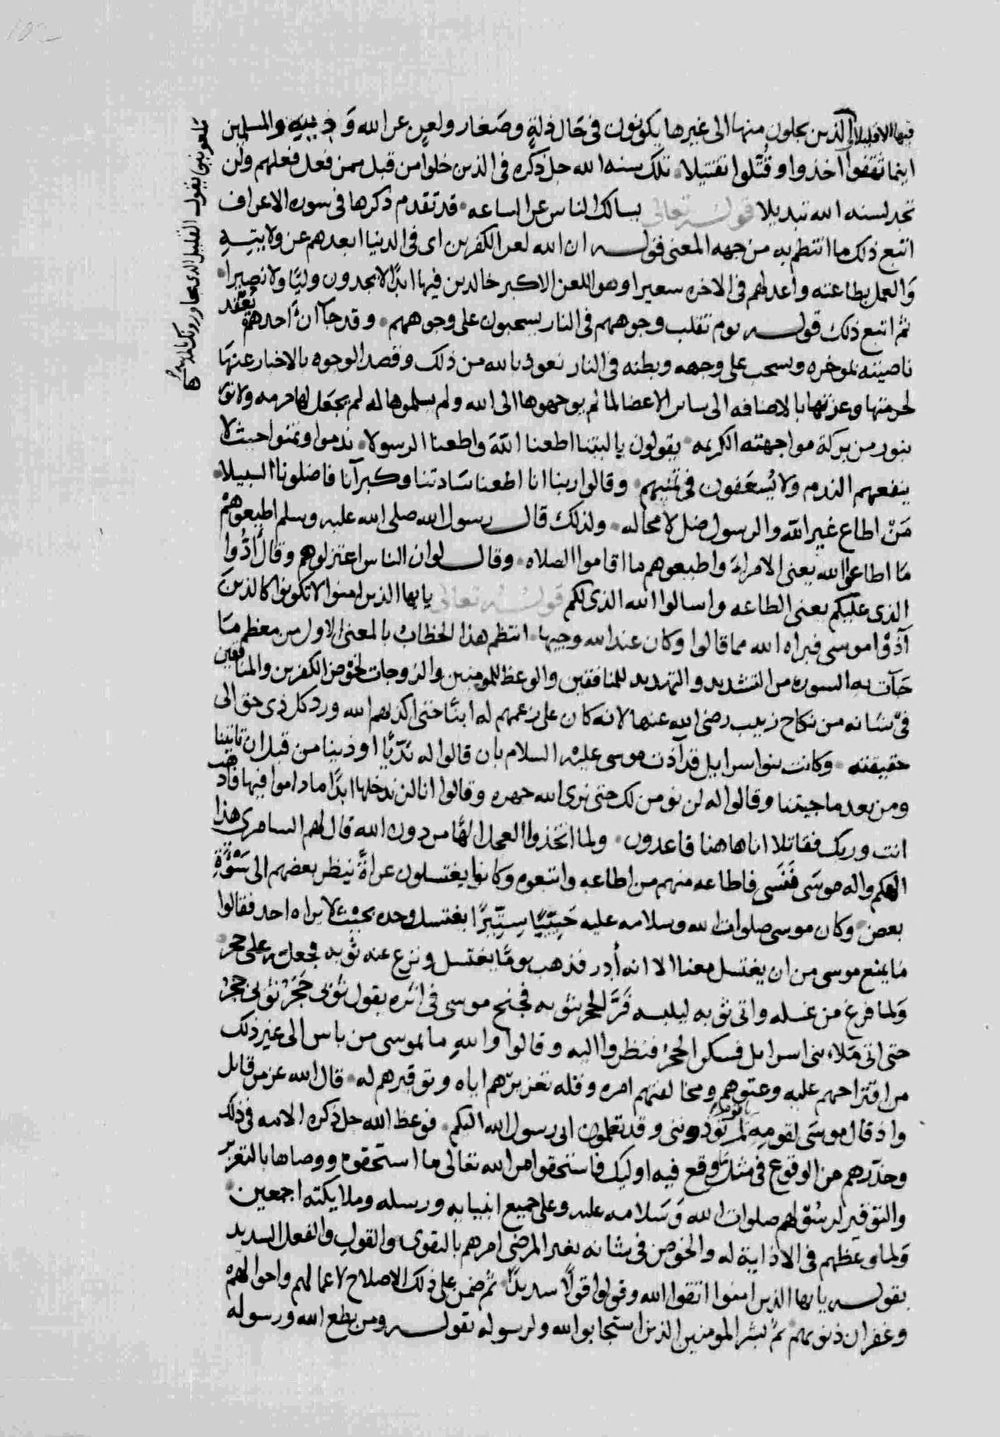 فيها الا قليلا الذين يجلون منها الى غيرها يكونون فى حال ذلة وصغار ولعن عن الله و والمسلمين
اينما ثقفوا اخذوا وقتلوا تقتيلا تلك سنه الله جل ذكره فى الذين خلوا من قبل ممن فعل فعلهم ولن
تجد لسنه الله تبديلا قوله تعالى يسالك الناس عن الساعه قد تقدم ذكرها فى سوره الاعراف
اتبع ذلك ما انتظم به من جهه المعنى قوله ان الله لعن الكفرين اى فى الدنيا ابعدهم عن ولايته
والعمل بطاعته واعد لهم فى الاخره سعيرا وهو اللعن الاكبر خالدين فيها ابدا لا يجدون وليا ولا نصيرا
ثم اتبع ذلك قوله يوم تقلب وجوههم فى النار يسحبون على وجوههم وقد جا ان احدهم تعقد
ناصيته بموخره ويسحب على وجهه وبطنه فى النار نعوذ بالله من ذلك وقصد الوجوه بالاخبار عنها
لحرمتها وعزتها بالاضافه الى ساير الاعضا لما لم يوجهوها الى الله ولم يسلموها له لم يجعل لها حرمه ولا
بنور من بركة مواجهته الكريمه يقولون ياليتنا اطعنا الله واطعنا الرسولا ندموا وتمنوا حيث لا
ينفعهم الندم ولا يسعفون فى تمنيهم وقالوا ربنا انا اطعنا سادتنا وكبرآنا فاضلونا السبيلا
من اطاع غير الله والرسول ضل لا محاله ولذلك قال رسول الله صلى الله عليه وسلم اطيعوهم
ما اطاعوا الله يعنى الامراء واطيعوهم ما اقاموا الصلاه وقال لو ان الناس اعتزلوهم وقال ادوا
الذى عليكم يعنى الطاعه واسالوا الله الذى لكم قوله تعالى يا يها الذين امنوا لا تكونوا كالذين
آذوا موسى فبراه الله مما قالوا وكان عند الله وجيها انتظم هذا الخطاب بالمعنى الاول من معظم ما
جآت به السوره من التشديد والتهديد للمنافقين والوعظ للمومنين والزوجات لخوض الكفرين والمنافقين
فى شانه من نكاح زينب رضى الله عنها لانه كان على زعمهم له ابنا حتى اكذبهم الله ورد كل ذى حق الى
حقيقته وكانت بنوا سرايل قد آذت موسى عليه السلام بان قالوا له اوذينا من قبل ان تاتينا
ومن بعد ما جيتنا وقالوا له لن نومن لك حتى نرى الله جهره وقالوا انا لن ندخلها ابدا ما داموا فيها فاذهب
انت وربك فقاتلا انا هاهنا قاعدون ولما اتخذوا العجل الها من دون الله قال لهم السامرى هذا
الهكم واله موسى فنسى فاطاعه منهم من اطاعه واتبعوه وكانوا يغتسلون عراة ينظر بعضهم الى سوءة
بعض وكان موسى صلوات الله وسلامه عليه حييا ستيرا يغتسل وحده بحيث لا يراه احد فقالوا
ما يمنع موسى من ان يغتسل معنا الا انه أدر فذهب يوما يغتسل ونزع عنه ثوبه فجعله على حجر
ولما فرغ من غسله واتى ثوبه ليلبسه فر الحجر بثوبه فجمح موسى فى اثره يقول ثوبى حجر ثوبى حجر
حتى اتى ملاء بنى اسرايل فسكن الحجر فنظروا اليه وقالوا والله ما بموسى من باس الى غير ذلك
من اقتراحهم عليه وعتوهم ومخالفتهم امره وقله تعزيرهم اياه وتوقيرهم له قال الله عز من قايل
واذ قال موسى لقومه لم تؤذوننى وقد تعلمون انى رسول الله اليكم فوعظ الله جل ذكره الامه فى ذلك
وحذرهم من الوقوع فى مثل ما وقع فيه اوليك فاستحقوا من الله تعالى ما استحقوه ووصاها بالتعزير
والتوقير لرسولهم صلوات الله وسلامه عليه وعلى جميع انبيايه ورسله وملايكته اجمعين
ولما وعظهم فى الاذاية له والخوض فى شانه بغير المرضى امرهم بالتقوى والقول والفعل السديد
بقوله يا يها الذين امنوا اتقوا الله وقولوا قولا سديدا ثم ضمن على ذلك الاصلاح لاعمالهم واحوالهم
وغفران ذنوبهم ثم بشر المومنين الذين استجابوا لله ولرسوله بقوله ومن يطع الله ورسوله